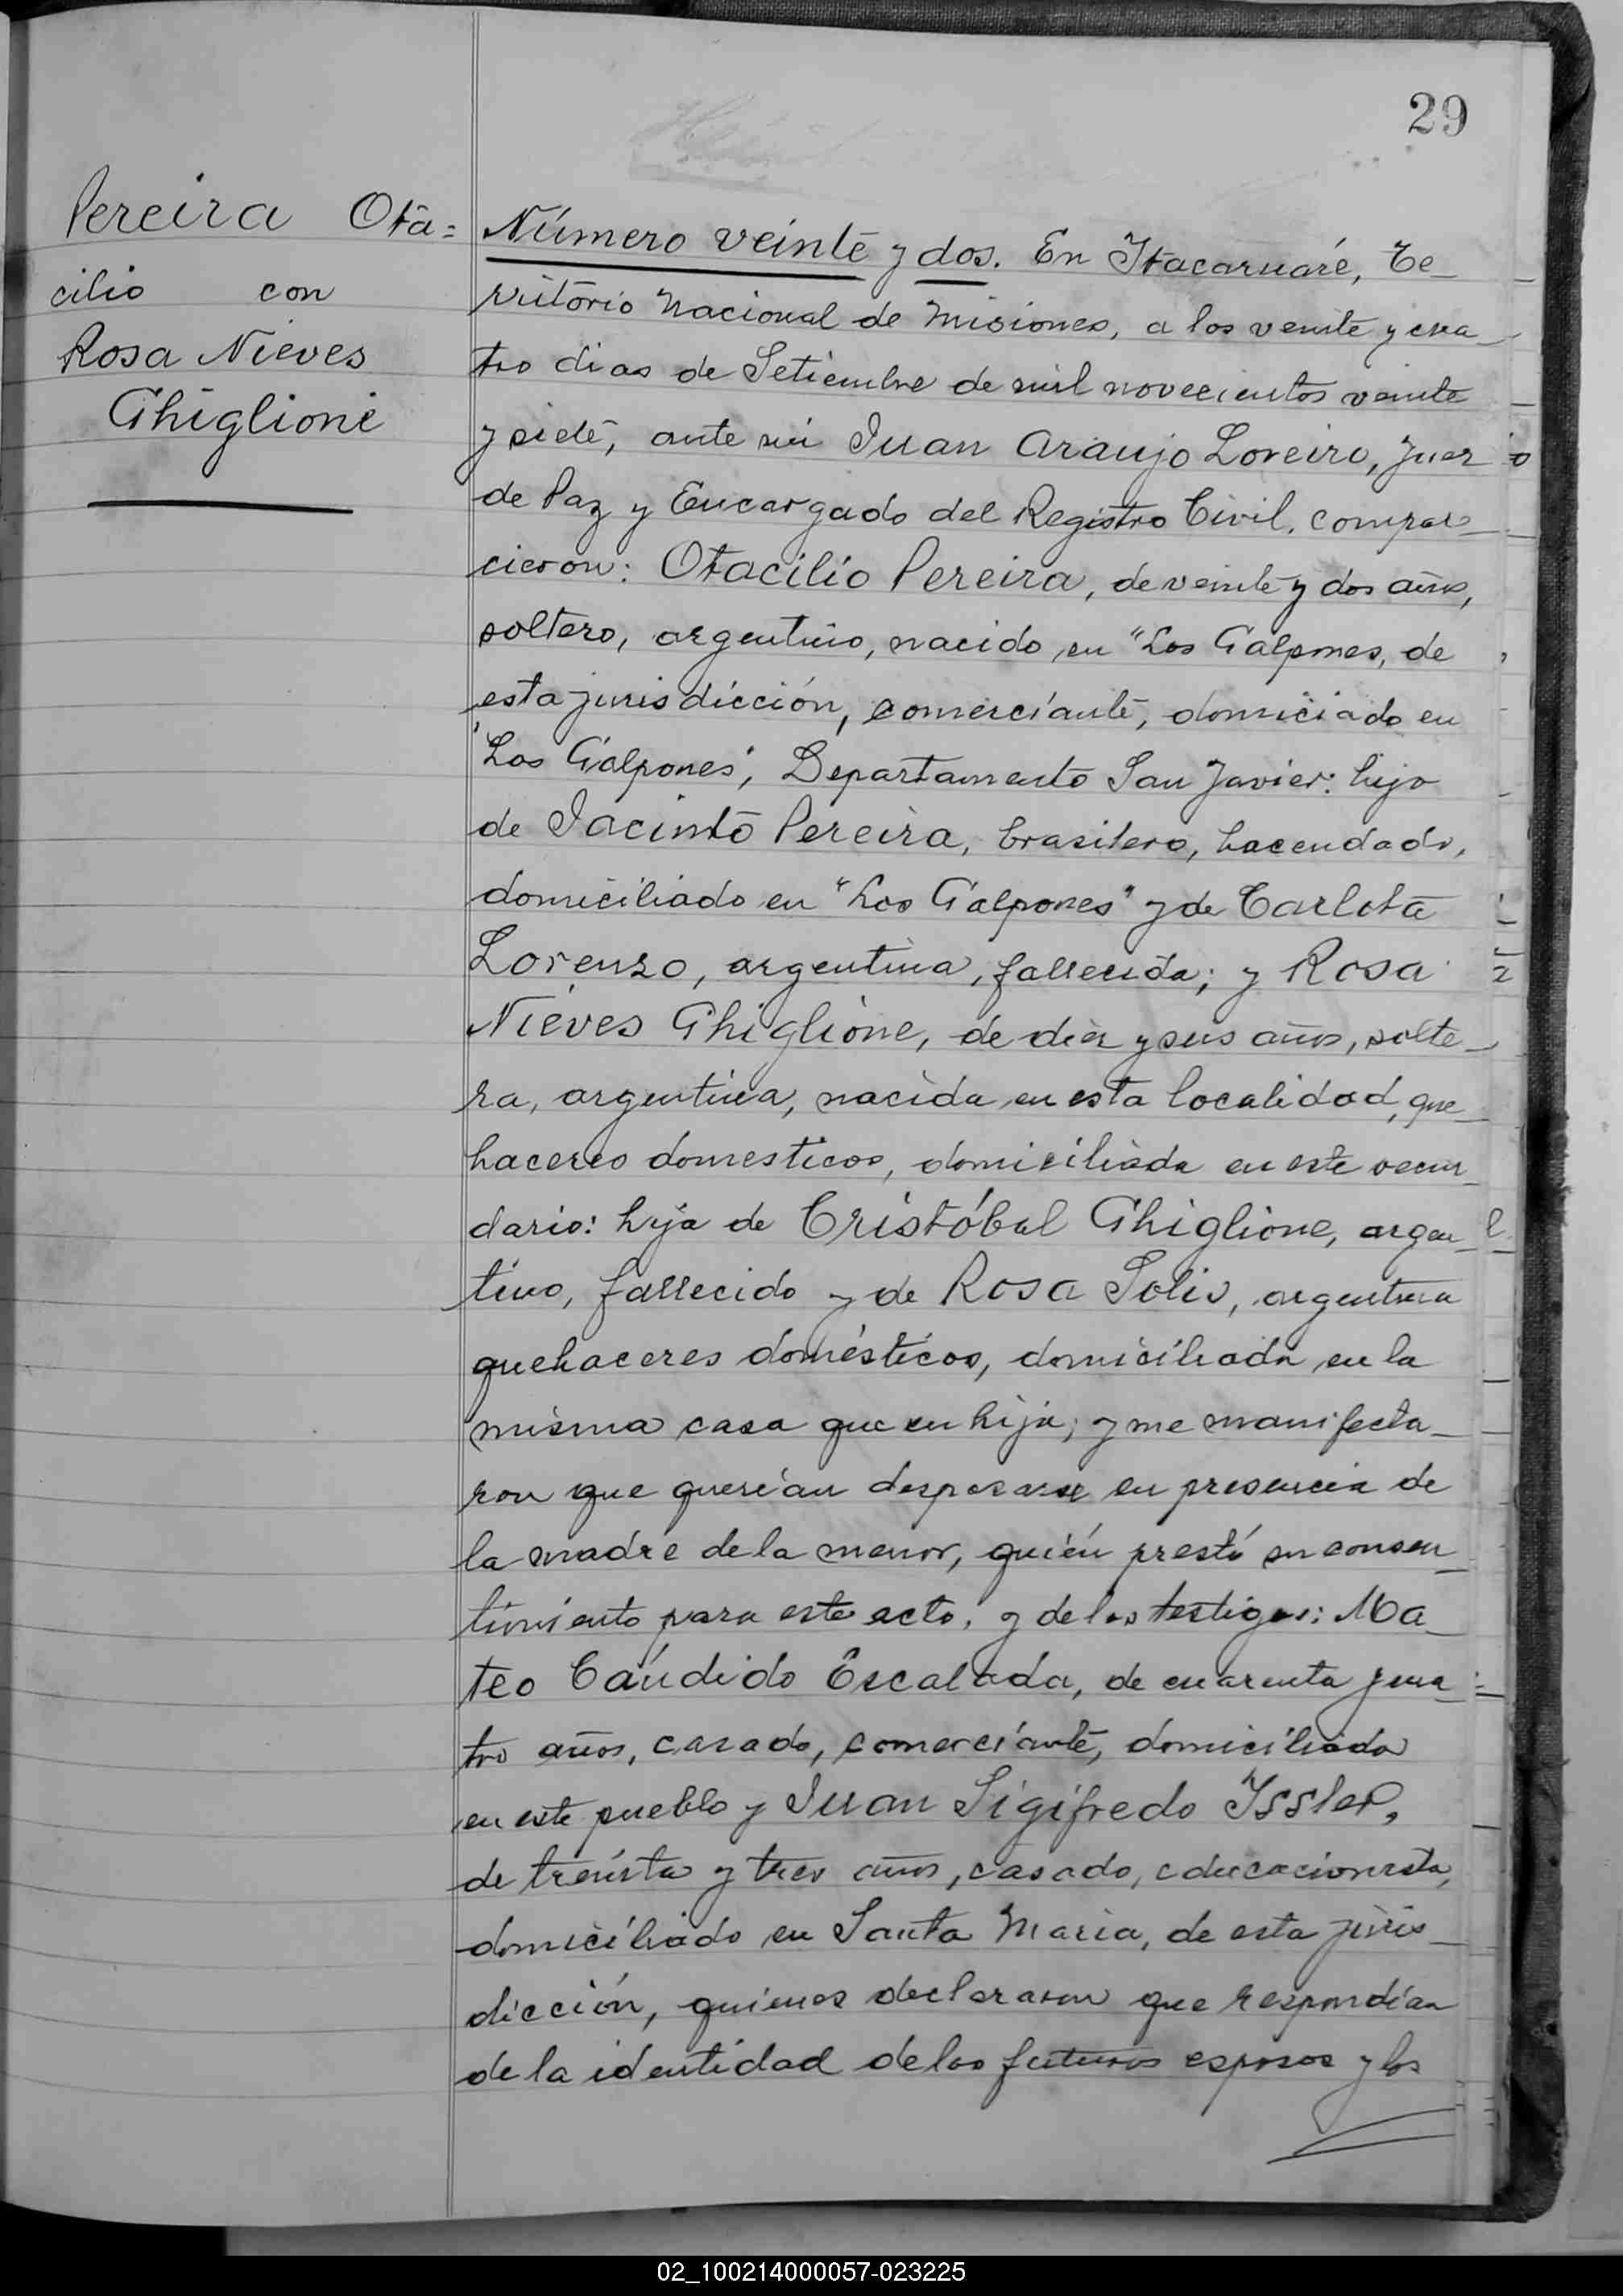 29
Pereira Ota=
cilio con
Rosa Nieves
Ghiglione
Número veinte y dos. En Itacaruaré, Te_
rritorio Nacional de Misiones, a los veinte y cua_
tro dias de Setiembre de mil novecientos veinte
y siete, ante mi Juan Araujo Loveiro, Juez
de Paz y Encargado del Registro Civil, compare_
cieron: Otacilio Pereira, de veinte y dos años,
soltero, argentino, nacido en "Los Galpones, de
esta jurisdicción, comerciante, domiciado en
"Los Galpones", Departamento San Javier: hijo
de Jacinto Pereira, brasilero, hacendado,
domiciliado en "Los Galpones" y de Carlota
Lorenzo, argentina, fallecida; y Rosa
Nieves Ghiglione, de diez y seis años, solte_
ra, argentina, nacida en esta localidad, que_
haceres domesticos, domiciliada en este vecin_
dario: hija de Cristóbal Ghiglione, argen_
tino, fallecido y de Rosa Solis, argentina
quehaceres domésticos, domiciliada en la
misma casa que su hija; y me manifesta_
ron que querían desposarse en presencia de
la madre de la menor, quién prestó su consen_
timiento para este acto, y de los testigos: Ma_
teo Cándido Escalada, de cuarenta y cua_
tro años, casado, comerciante, domiciliado
en este pueblo y Juan Sigifredo Issler,
de treinta y tres años, casado, educacionista,
domiciliado en Santa María, de esta juris_
dicción, quienes declararon que respondían
de la identidad de los futuros esposos y los
02_100214000057-023225